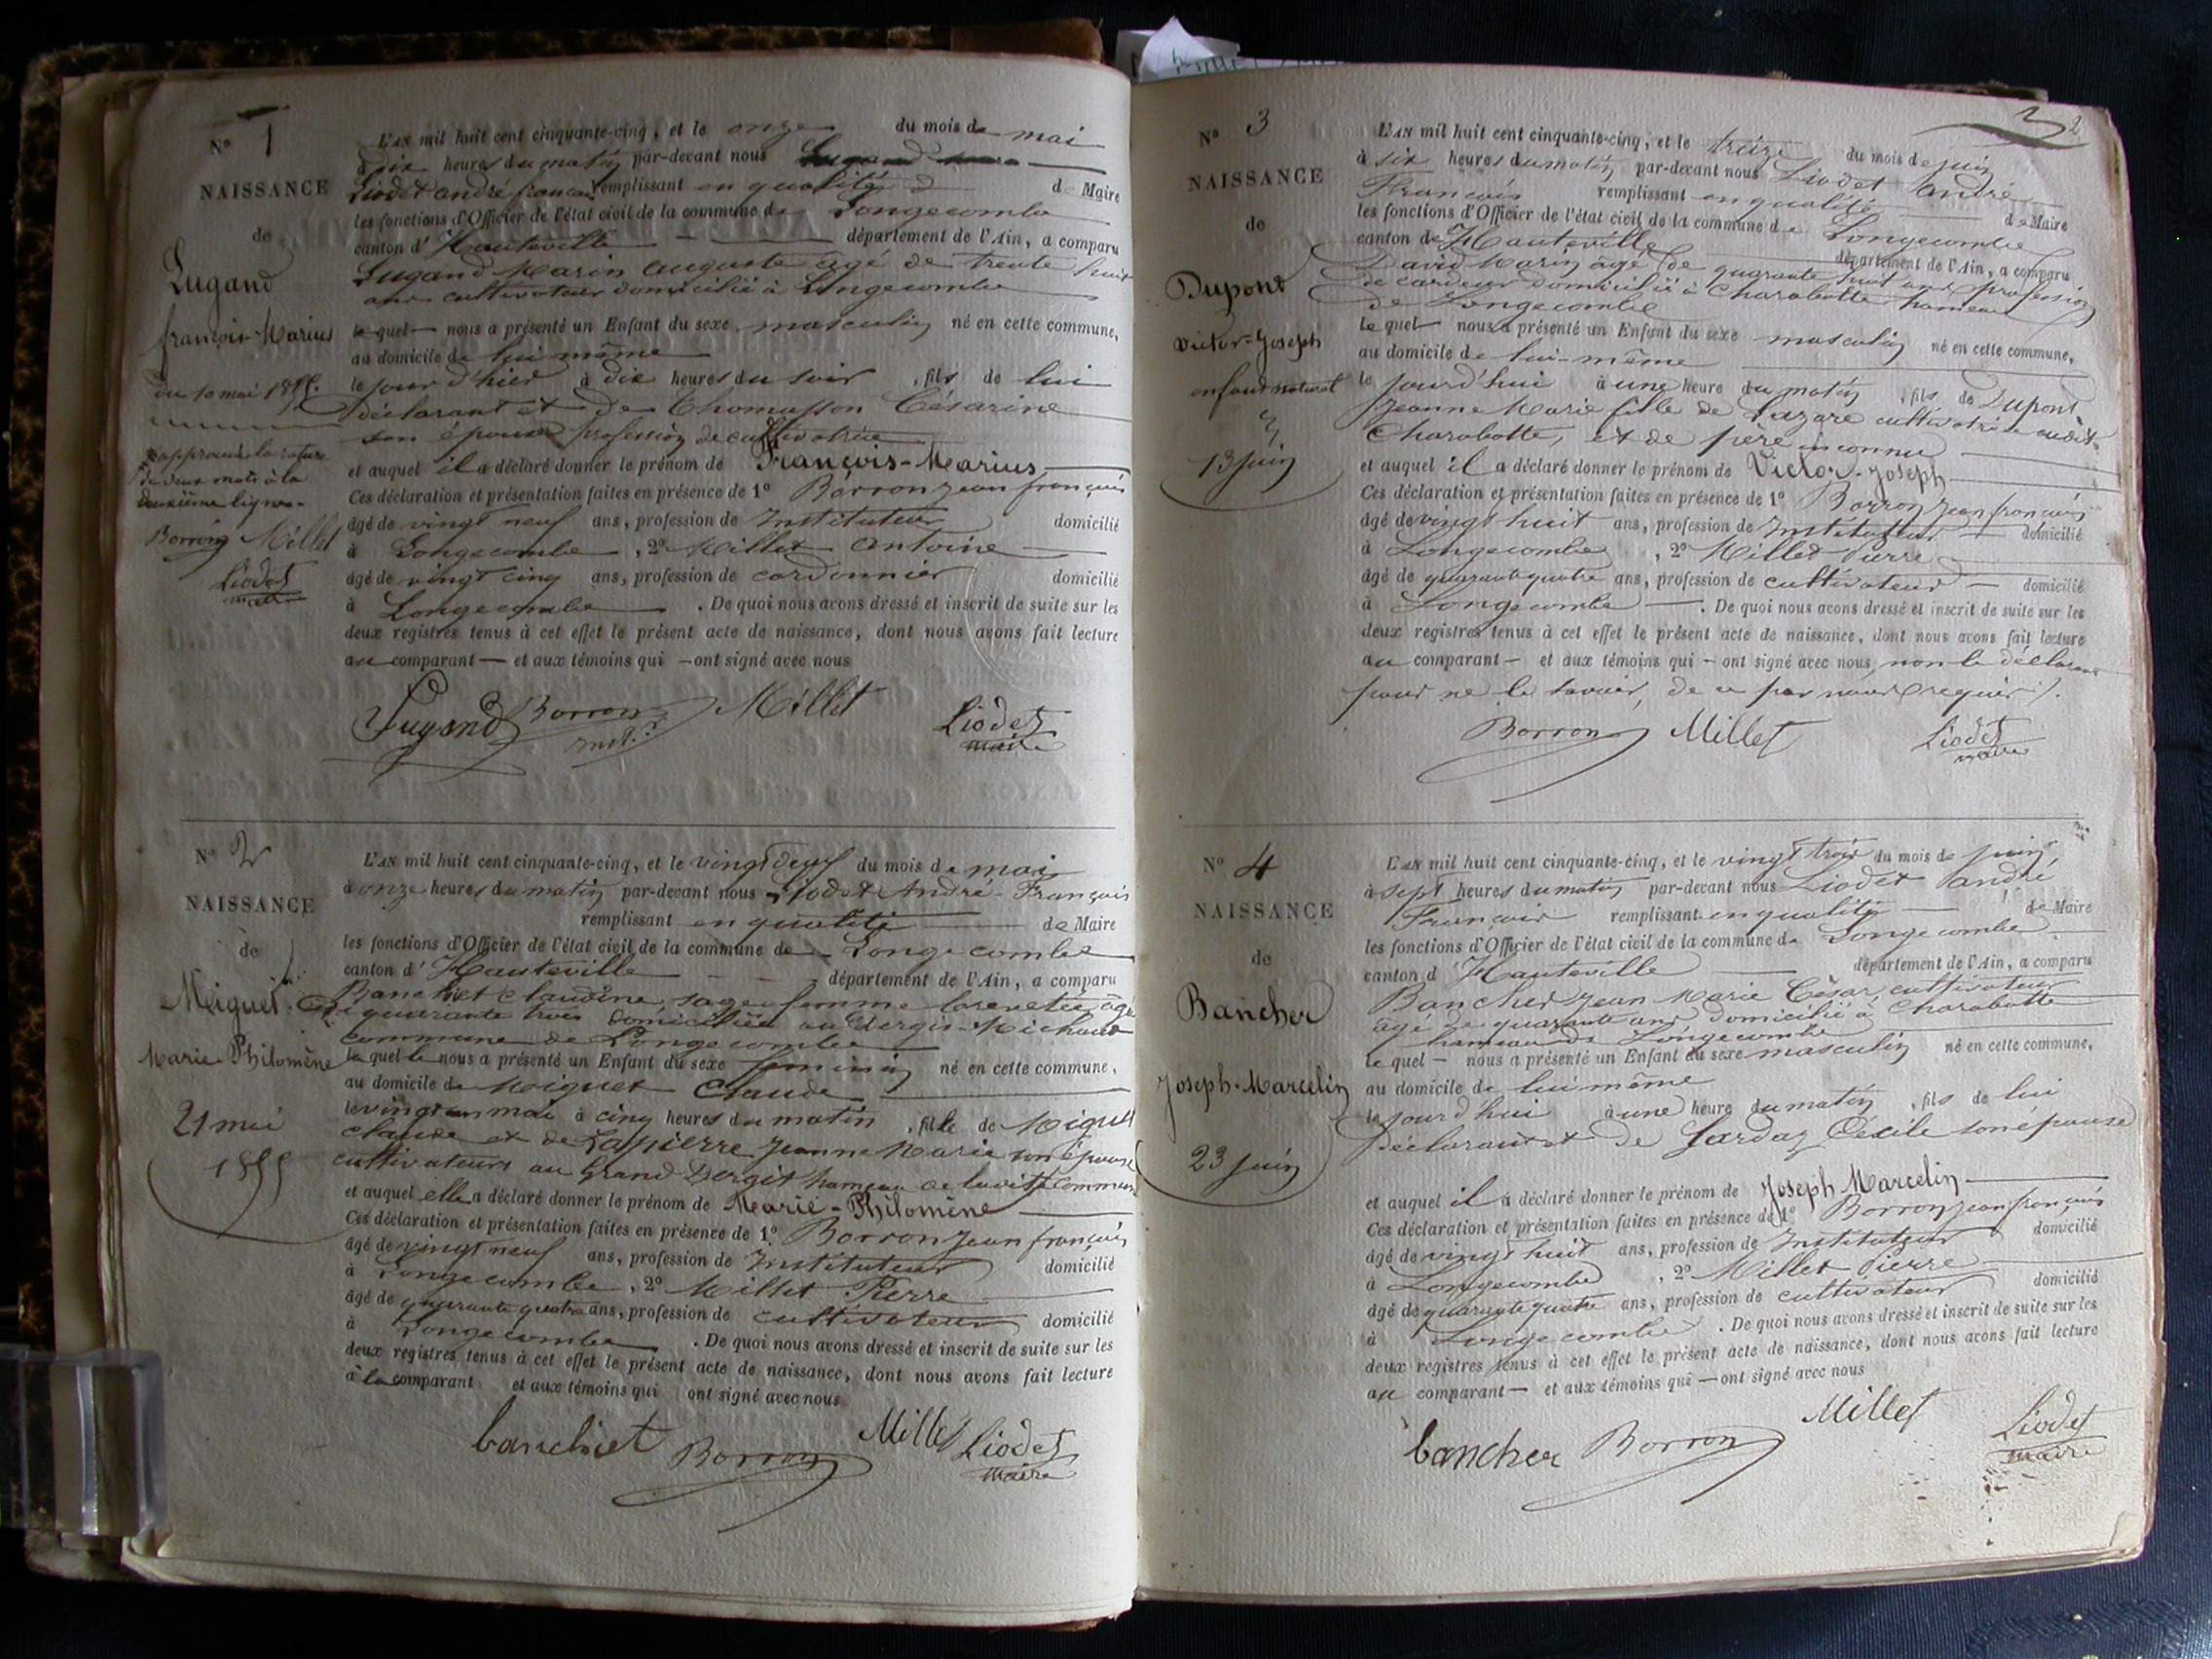 N° 1
NAISSANCE
de
Lugand
françois-Marius
du 10 mai 1855.
approuvé la rature
de deux mots à la
deuxième ligne.
Borron Millet
Liodet
maire
L'AN mil huit cent cinquante-cinq, et le onze du mois de mai
à dix heures du matin par-devant nous
Liodet andré françois remplissant en qualité de Maire
les fonctions d'Officier de l'état civil de la commune de Longecombe
canton d'Hauteville département de l'Ain, a comparu
Lugand Marin auguste agé de trente huit
ans cultivateur domicilié à Longecombe
lequel nous a présenté un Enfant du sexe masculin né en cette commune,
au domicile de lui même
le jour d'hier à dix heures du soir, fils de lui
déclarant et de Thomasson Césarine
son épouse profession de cultivatrice
et auquel il a déclaré donner le prénom de François-Marius
Ces déclaration et présentation faites en présence de 1° Borron jean françois
âgé de vingt neuf ans, profession de Instituteur domicilié
à Longecombe, 2° Millet Antoine
âgé de vingt cinq ans, profession de cordonnier domicilié
à Longecombe. De quoi nous avons dressé et inscrit de suite sur les
deux registres tenus à cet effet le présent acte de naissance, dont nous avons fait lecture
au comparant et aux témoins qui ont signé avec nous
Lugand Borron Millet Liodet
inst. maire
N° 2
NAISSANCE
de
Miguet
Marie Philomène
21 mai
1855
L'AN mil huit cent cinquante-cinq, et le vingt deux du mois de mai
à onze heures du matin par-devant nous Liodet André-François
remplissant en qualité de Maire
les fonctions d'Officier de l'état civil de la commune de Longecombe
canton d'Hauteville département de l'Ain, a comparu
Banchet claudine, sage femme brevetée âgée
de quarante trois domiciliée au Dergis-Michaud
commune de Longecombe
laquelle nous a présenté un Enfant du sexe féminin né en cette commune,
au domicile de Miguet Claude
le vingt un mai à cinq heures du matin, fille de Miguet
claude et de Lapierre Jeanne Marie son épouse
cultivateurs au Grand Dergit hameau de la dite commune
et auquel elle a déclaré donner le prénom de Marie-Philomène
Ces déclaration et présentation faites en présence de 1°. Borron jean françois
âgé de vingt neuf ans, profession de Instituteur domicilié
à Longecombe, 2° Millet Pierre
âgé de quarante quatre ans, profession de cultivateur domicilié
à Longecombe. De quoi nous avons dressé et inscrit de suite sur les
deux registres tenus à cet effet le présent acte de naissance, dont nous avons fait lecture
à la comparant et aux témoins qui ont signé avec nous
banchet Borron Millet Liodet
maire
2
N° 3
NAISSANCE
de
Dupont
victor-Joseph
enfant naturel
13 juin
L'AN mil huit cent cinquante-cinq, et le treize du mois de juin
à six heures du matin par-devant nous Liodet André
François remplissant en qualité de Maire
les fonctions d'Officier de l'état civil de la commune de Longecombe
canton de Hauteville département de l'Ain, a comparu
David Marin âgé de quarante huit ans profession
de cardeur domicilié à Charabotte hameau
de Longecombe
lequel nous a présenté un Enfant du sexe masculin né en cette commune,
au domicile de lui-même
le jourd'hui à une heure du matin, fils de Dupont
Jeanne Marie fille de Lazare cultivatrice audit
Charabotte, et de père inconnu
et auquel il a déclaré donner le prénom de Victor-Joseph
Ces déclaration et présentation faites en présence de 1° Borron jean françois
âgé de vingt huit ans, profession de Instituteur domicilié
à Longecombe, 2° Millet Pierre
âgé de quarante quatre ans, profession de cultivateur domicilié
à Longecombe. De quoi nous avons dressé et inscrit de suite sur les
deux registres tenus à cet effet le présent acte de naissance, dont nous avons fait lecture
au comparant et aux témoins qui ont signé avec nous, non le déclarant
pour ne le savoir, de ce par nous requis.
Borron Millet Liodet
maire
N° 4
NAISSANCE
de
Bancher
Joseph-Marcelin
23 juin
L'AN mil huit cent cinquante-cinq, et le vingt trois du mois de juin,
à sept heures du matin par-devant nous Liodet andré
François remplissant en qualité de Maire
les fonctions d'Officier de l'état civil de la commune de Longecombe
canton d'Hauteville département de l'Ain, a comparu
Bancher Jean Marie César, cultivateur
âgé de quarante ans domicilié à Charabotte
hameau de Longecombe
lequel nous a présenté un Enfant du sexe masculin né en cette commune,
au domicile de lui même
le jourd'hui à une heure du matin, fils de lui
déclarant et de Jarday Cécile son épouse
et auquel il a déclaré donner le prénom de Joseph Marcelin
Ces déclaration et présentation faites en présence de 1° Borron jean françois
âgé de vingt huit ans, profession de Instituteur domicilié
à Longecombe, 2° Millet Pierre
âgé de quarante quatre ans, profession de cultivateur domicilié
à Longecombe. De quoi nous avons dressé et inscrit de suite sur les
deux registres tenus à cet effet le présent acte de naissance, dont nous avons fait lecture
au comparant et aux témoins qui ont signé avec nous
bancher Borron Millet Liodet
maire